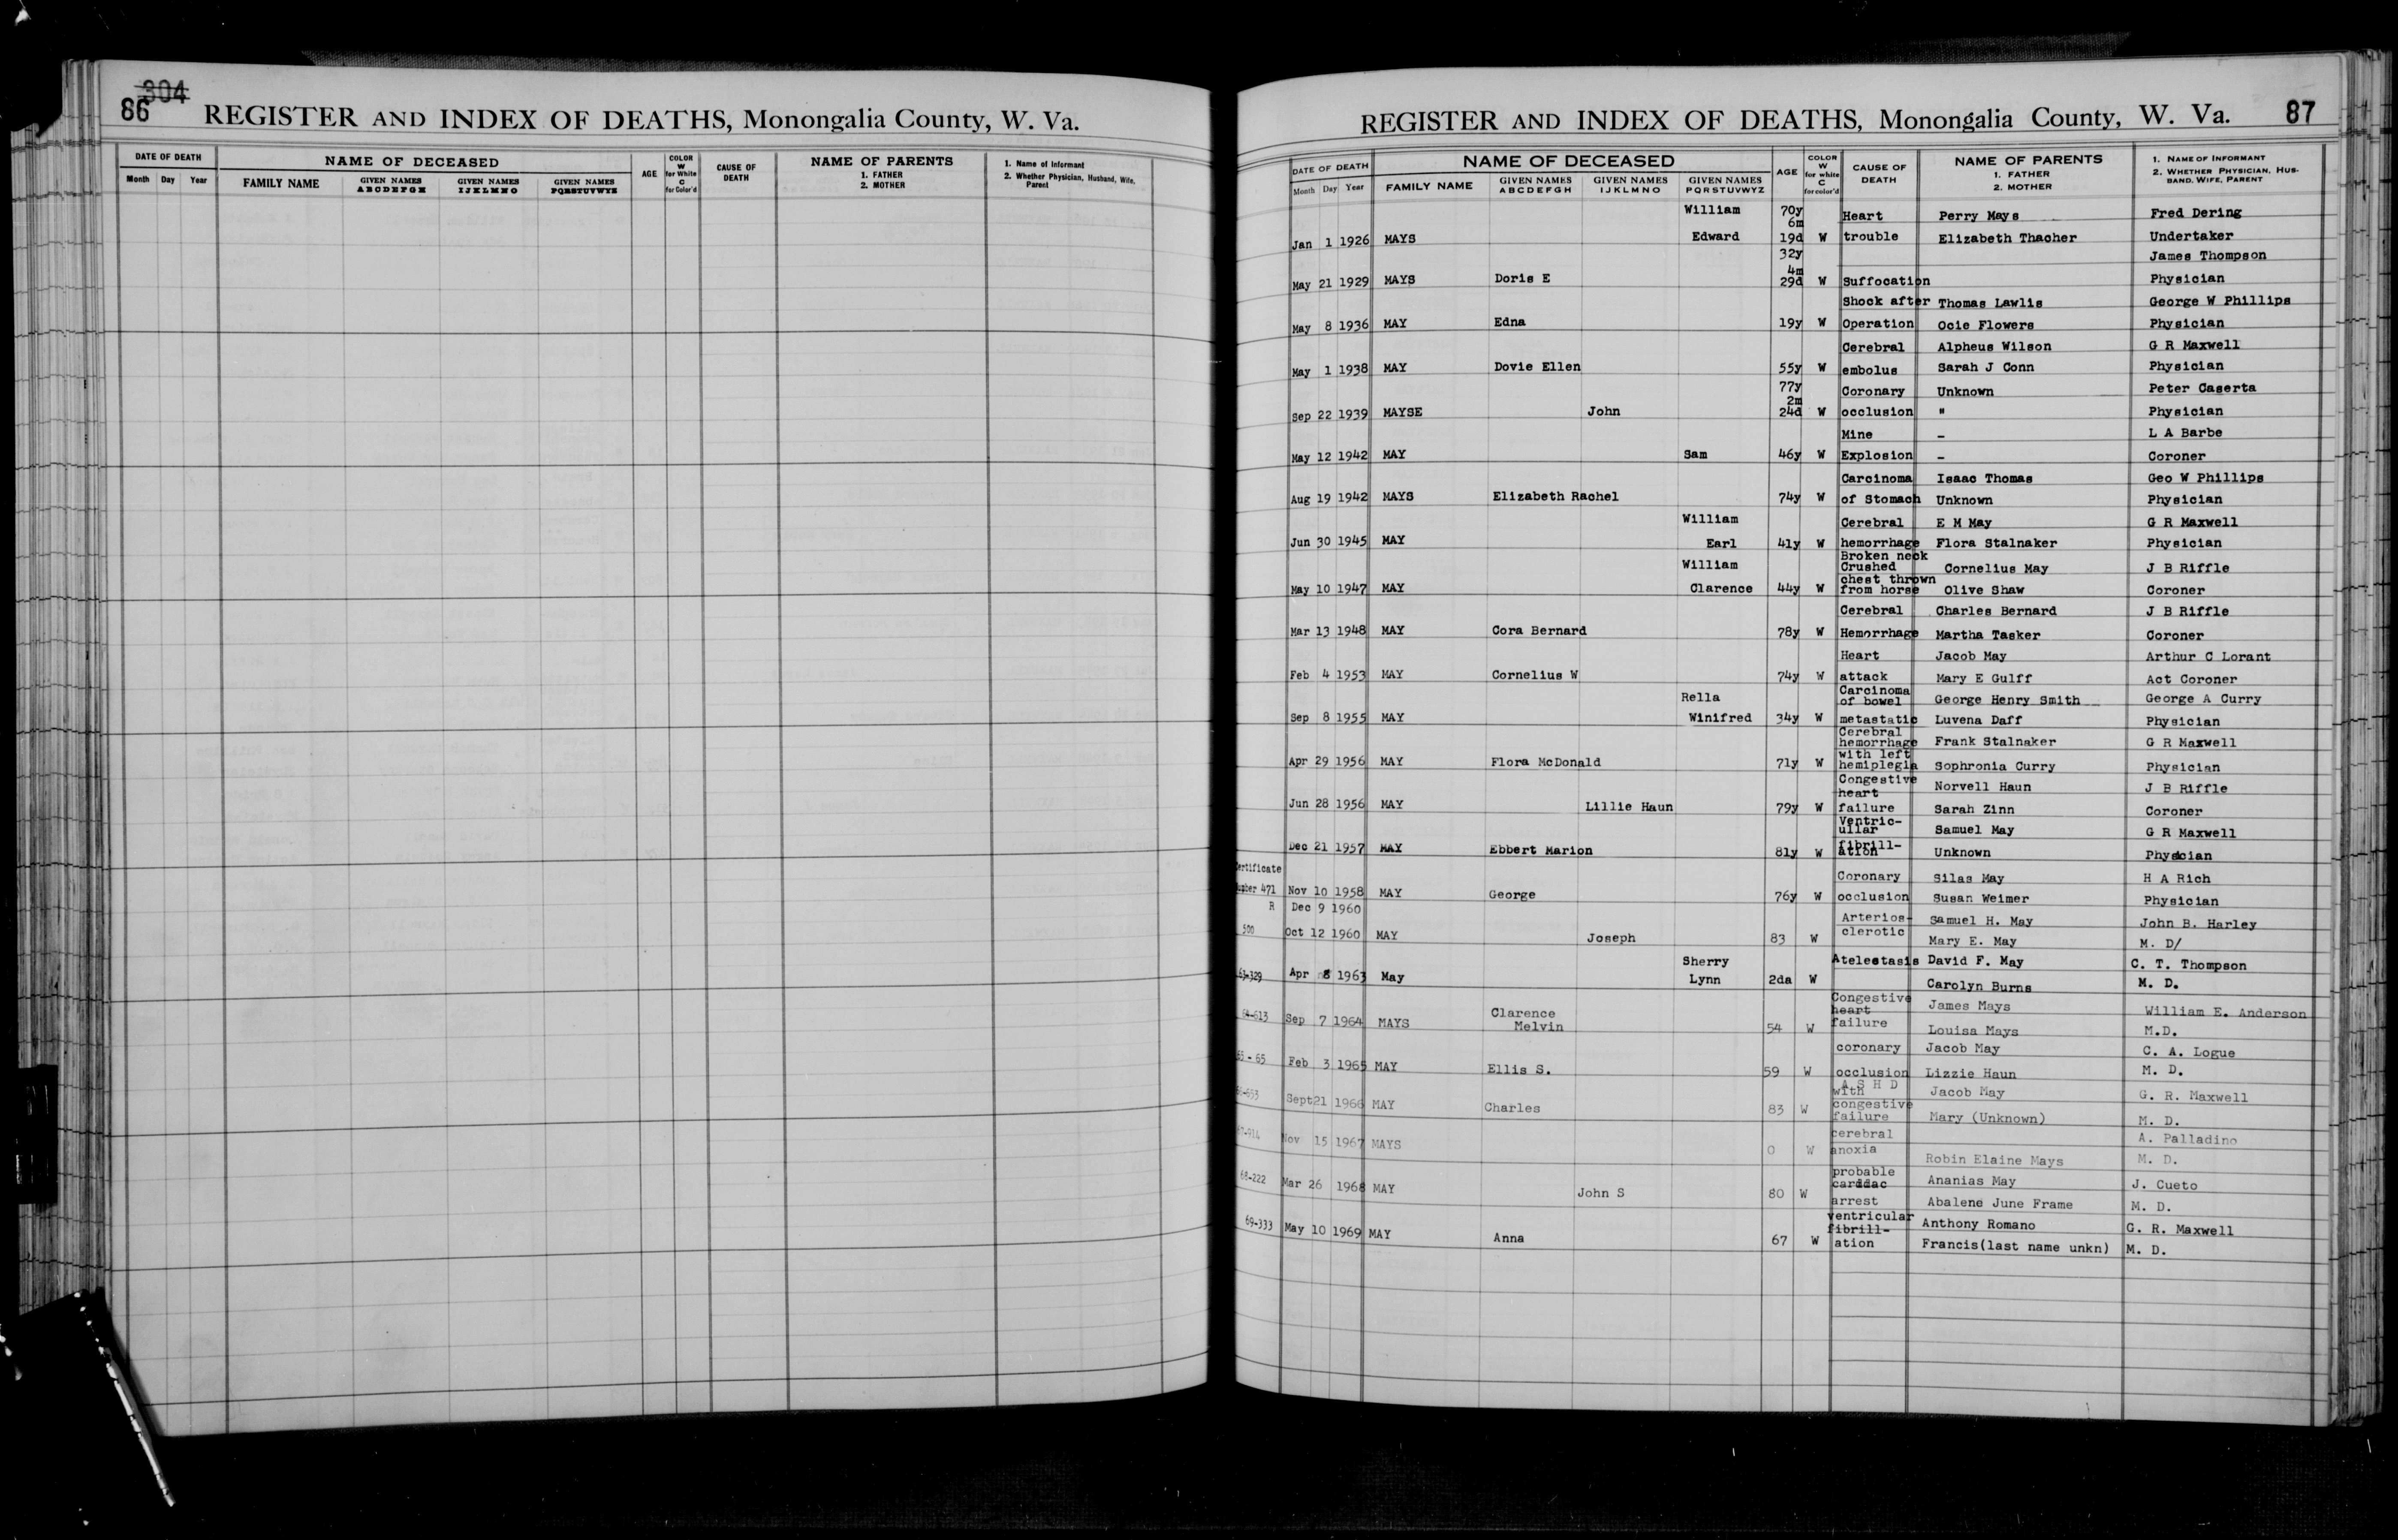 304
86 REGISTER AND INDEX OF DEATHS, Monongalia County, W. Va.
DATE OF DEATH NAME OF DECEASED AGE COLOR W for White C for Color'd CAUSE OF DEATH NAME OF PARENTS 1. FATHER 2. MOTHER 1. Name of Informant 2. Whether Physician, Husband, Wife, Parent
Month Day Year FAMILY NAME GIVEN NAMES ABCDEFGH GIVEN NAMES IJKLMNO GIVEN NAMES PQRSTUVWYZ
REGISTER AND INDEX OF DEATHS, Monongalia County, W. Va. 87
DATE OF DEATH NAME OF DECEASED AGE COLOR W for white C for color'd CAUSE OF DEATH NAME OF PARENTS 1. FATHER 2. MOTHER 1. NAME OF INFORMANT 2. WHETHER PHYSICIAN, HUSBAND, WIFE, PARENT
Month Day Year FAMILY NAME GIVEN NAMES ABCDEFGH GIVEN NAMES IJKLMNO GIVEN NAMES PQRSTUVWYZ
William 70y 6m Heart Perry Mays Fred Dering
Jan 1 1926 MAYS Edward 19d W trouble Elizabeth Thacher Undertaker
32y 4m James Thompson
May 21 1929 MAYS Doris E 29d W Suffocation Physician
Shock after Thomas Lawlis George W Phillips
May 8 1936 MAY Edna 19y W Operation Ocie Flowers Physician
Cerebral Alpheus Wilson G R Maxwell
May 1 1938 MAY Dovie Ellen 55y W embolus Sarah J Conn Physician
77y 2m Coronary Unknown Peter Caserta
Sep 22 1939 MAYSE John 24d W occlusion " Physician
Mine - L A Barbe
May 12 1942 MAY Sam 46y W Explosion - Coroner
Carcinoma Isaac Thomas Geo W Phillips
Aug 19 1942 MAYS Elizabeth Rachel 74y W of Stomach Unknown Physician
William Cerebral E M May G R Maxwell
Jun 30 1945 MAY Earl 41y W hemorrhage Flora Stalnaker Physician
William Broken neck Crushed Cornelius May J B Riffle
May 10 1947 MAY Clarence 44y W chest thrown from horse Olive Shaw Coroner
Cerebral Charles Bernard J B Riffle
Mar 13 1948 MAY Cora Bernard 78y W Hemorrhage Martha Tasker Coroner
Heart Jacob May Arthur C Lorant
Feb 4 1953 MAY Cornelius W 74y W attack Mary E Gulff Act Coroner
Rella Carcinoma of bowel George Henry Smith George A Curry
Sep 8 1955 MAY Winifred 34y W metastatic Luvena Daff Physician
Cerebral hemorrhage Frank Stalnaker G R Maxwell
Apr 29 1956 MAY Flora McDonald 71y W with left hemiplegia Sophronia Curry Physician
Congestive heart Norvell Haun J B Riffle
Jun 28 1956 MAY Lillie Haun 79y W failure Sarah Zinn Coroner
Ventric- ullar Samuel May G R Maxwell
Dec 21 1957 MAY Ebbert Marion 81y W fibrill- ation Unknown Physician
Certificate Coronary Silas May H A Rich
Number 471 Nov 10 1958 MAY George 76y W occlusion Susan Weimer Physician
R Dec 9 1960 Arterios- Samuel H. May John B. Harley
500 Oct 12 1960 MAY Joseph 83 W clerotic Mary E. May M. D/
Sherry Atelestasis David F. May C. T. Thompson
63-329 Apr 8 1963 May Lynn 2da W Carolyn Burns M. D.
Clarence Congestive heart James Mays William E. Anderson
64-613 Sep 7 1964 MAYS Melvin 54 W failure Louisa Mays M.D.
coronary Jacob May C. A. Logue
65-65 Feb 3 1965 MAY Ellis S. 59 W occlusion Lizzie Haun M. D.
A S H D with Jacob May G. R. Maxwell
66-653 Sept 21 1966 MAY Charles 83 W congestive failure Mary (Unknown) M. D.
cerebral A. Palladino
67-914 Nov 15 1967 MAYS 0 W anoxia Robin Elaine Mays M. D.
probable cardiac Ananias May J. Cueto
68-222 Mar 26 1968 MAY John S 80 W arrest Abalene June Frame M. D.
ventricular fibrill- Anthony Romano G. R. Maxwell
69-333 May 10 1969 MAY Anna 67 W ation Francis(last name unkn) M. D.